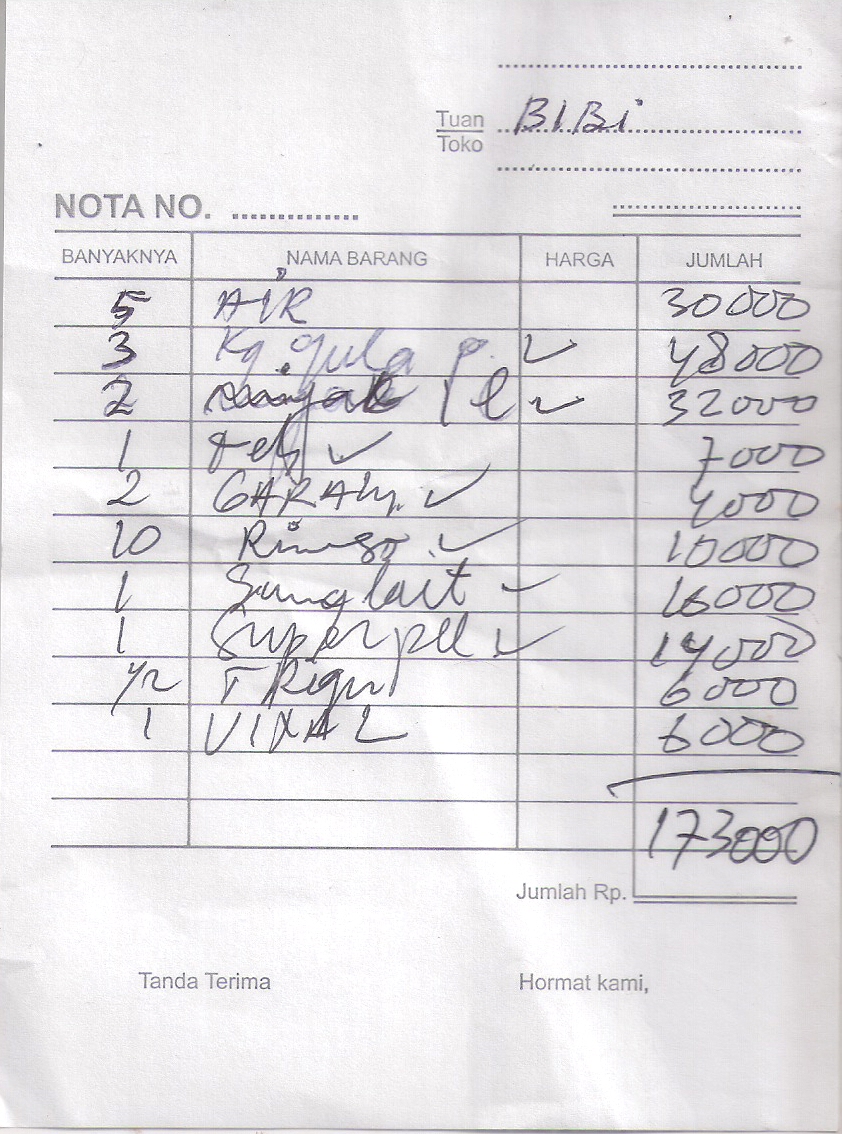 Tuan BIBI
Toko
NOTA NO.
BANYAKNYA NAMA BARANG HARGA JUMLAH
5 AIR 30000
3 Kg.gula p. 48000
2 minyak 1 l 32000
1 teh 7000
2 GARAM 4000
10 Rinso 10000
1 Sunglait 16000
1 Superpel 14000
1/2 TRigu 6000
1 VIXAL 6000
173000
Jumlah Rp.
Tanda Terima Hormat kami,